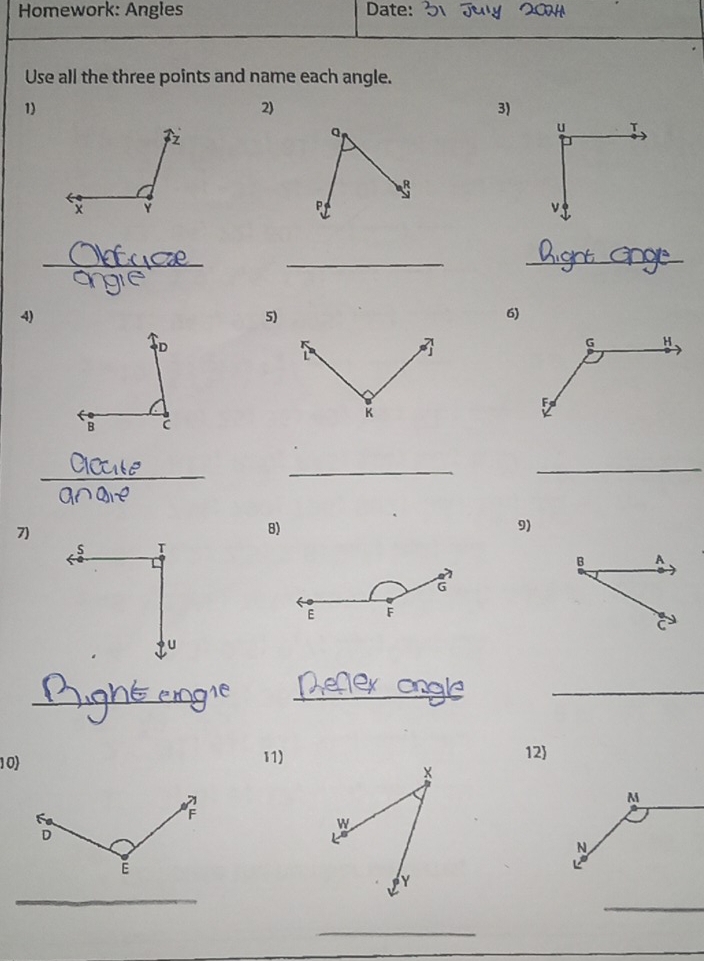 Homework: Angles
Date: 31 July 2024
Use all the three points and name each angle.
1)
2)
3)
Z
X
Y
Q
P
R
U
T
V
Obtuze
angle
Right angle
4)
5)
6)
D
B
C
L
J
K
G
H
F
acute
angle
7)
8)
9)
S
T
U
E
F
G
B
A
C
Right angle
Reflex angle
10)
11)
12)
D
F
E
X
W
Y
M
N